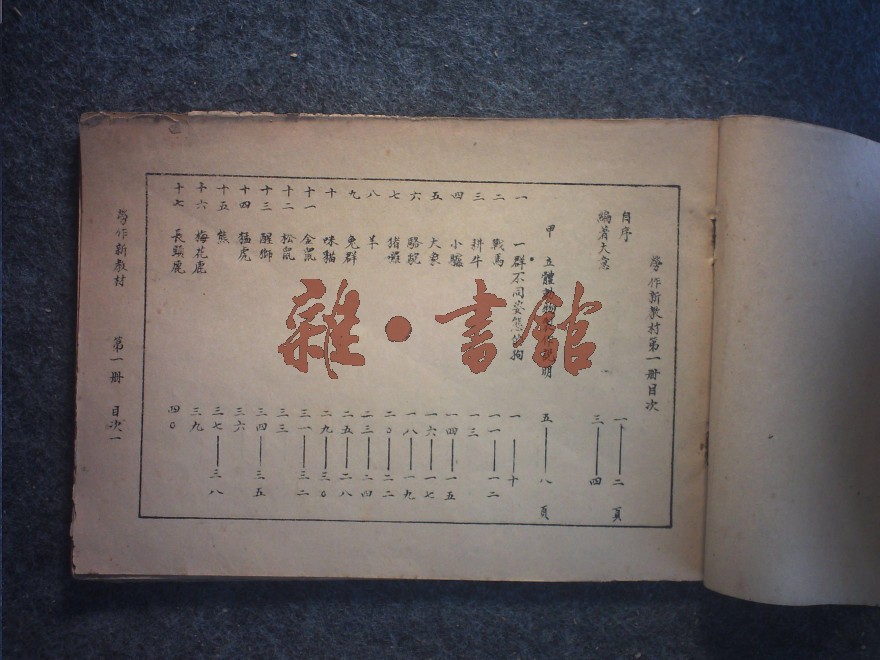 勞作新教材第一册目次
自序 一——二頁
編著大意 三——四
甲 立體動物 說明 五——八頁
一 一群不同姿態的狗 一——十
二 戰馬 一一——一二
三 耕牛 一三
四 小驢 一四——一五
五 大象 一六——一七
六 駱駝 一八——一九
七 猪玀 二〇——二二
八 羊 二三——二四
九 兔群 二五——二八
十 咪貓 二九——三〇
十一 金鼠 三一——三二
十二 松鼠 三三
十三 醒獅 三四——三五
十四 猛虎 三六
十五 熊 三七——三八
十六 梅花鹿 三九
十七 長頸鹿 四〇
勞作新教材 第一册 目次一
雜·書館